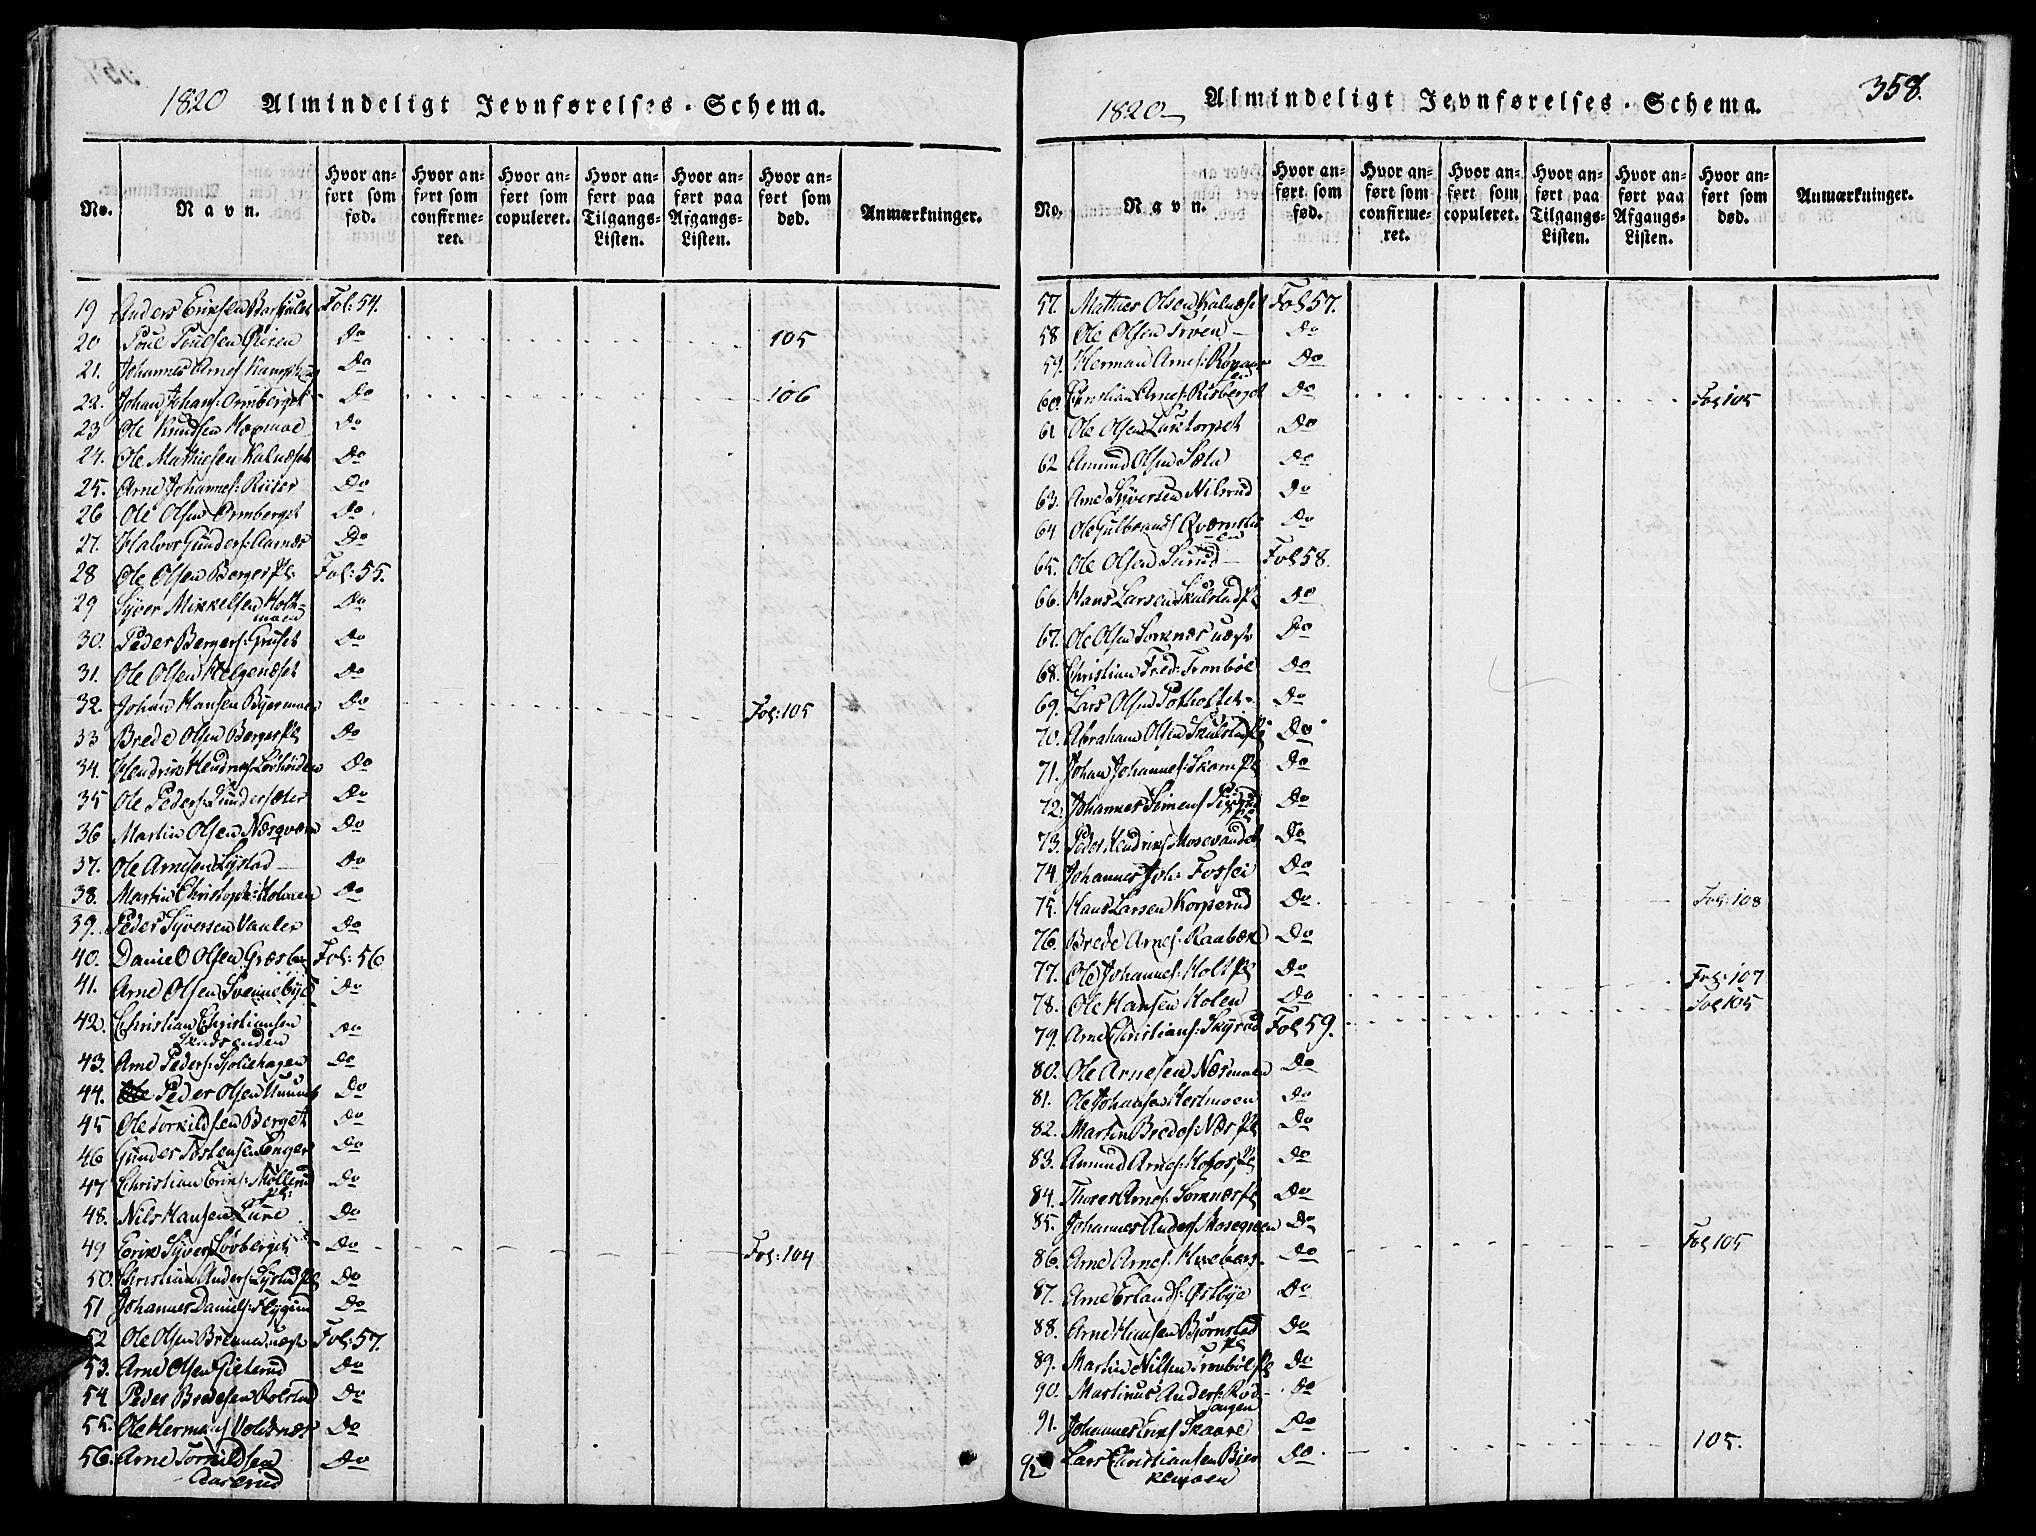 1820 Almindeligt Jevnførelses-Schema.
No.
Navn.
Hvor anført som fød.
Hvor anført som confirmeret.
Hvor anført som copuleret.
Hvor anført paa Tilgangs-Listen.
Hvor anført paa Afgangs-Listen.
Hvor anført som død.
Anmærkninger.
19 Anders Eriksen Fol: 54.
20 Poul Poulsen Do 105
21. Johannes Arnes: Do
22. Johan Johans: Ormberget Do 106
23 Ole Knudsen Do
24. Ole Mathiesen Kalnæset Do
25. Arne Johannes: Riiser Do
26 Ole Olsen Ormberget Do
27. Halvor Gunders: Aarnæs Do
28 Ole Olsen Berger Pl: Fol: 55.
29 Syver Mikkelsen Holtmoen Do
30. Peder Bergers: Gruset Do
31. Ole Olsen Helgenæset Do
32. Johan Hansen Do Fol: 105
33 Brede Olsen Berger Pl Do
34. Hendrik Hendriks: Do
35 Ole Peders: Gundersæter Do
36 Martin Olsen Næsqværn Do
37. Ole Arnesen Lystad Do
38. Martin Christoph: Do
39. Peder Syversen Vauler Do
40. Daniel Olsen Græsber Fol: 56
41. Arne Olsen Svennebye Do
42. Christian Christiansen Do
43. Arne Peders: Sjoliehagen Do
44. Peder Olsen Do
45 Ole Torkildsen Berget Do
46 Gunder Tostensen Enger Do
47 Christian Eriks: Møllerud Pl: Do
48. Nils Hansen Lure Do
49 Erik Syvers: Løvberget Do Fol: 104
50. Christian Anders: Lystad Pl Do
51 Johannes Daniels: Flygind Do
52 Ole Olsen Brenna Fol: 57.
53. Arne Olsen Gilterud Do
54 Peder Bredesen Rolstad Do
55. Ole Hermans: Voldnæs Do
56. Arne Torkildsen Aaserud Do
1820 Almindeligt Jevnførelses-Schema. 358.
No.
Navn.
Hvor anført som fød.
Hvor anført som confirmeret.
Hvor anført som copuleret.
Hvor anført paa Tilgangs-Listen.
Hvor anført paa Afgangs-Listen.
Hvor anført som død.
Anmærkninger.
57. Mathies Olsen Kalnæset Fol 57.
58. Ole Olsen Do
59. Herman Arnes: Do
60. Christian Arnes: Risberget Do Fol 105
61 Ole Olsen Do
62 Amund Olsen Sæta Do
63. Arne Syversen Nilsrud Do
64 Ole Gulbrands: Do
65. Ole Olsen Fol 58.
66. Hans Larsen Skulstad Pl Do
67. Ole Olsen Sorknæs Do
68. Christian Fred: Tronbøl Do
69. Lars Olsen Do
70. Abraham Olsen Skulstad Pl Do
71. Johan Johannes: Pl Do
72. Johannes Simens: Do
73. Peder Hendriks: Mosevandet Do
74. Johannes Joh: Fossei Do
75. Hans Larsen Korperud Do Fol: 108
76. Brede Arnes: Raabæk Do
77. Ole Johannes: Holt Pl Do Fol: 107
78. Ole Hansen Holen Do Fol 105
79. Arne Christians: Skyrud Fol 59.
80. Ole Arnesen Næsmoen Do
81. Ole Johansen Do
82. Martin Bredes: Næs Pl Do
83. Amund Arnes: Pl Do
84. Thores Arnes: Sorknæs Pl Do
85. Johannes Anders: Do Fol 105
86. Arne Arnes: Do
87. Arne Erlands: Østbye Do
88. Arne Hansen Bjørnstad Pl Do
89. Martin Nilsen Tronbøl Pl Do
90. Martinus Anders: Do
91. Johannes Eriks: Skaare Do
92 Lars Christiansen Do 105.